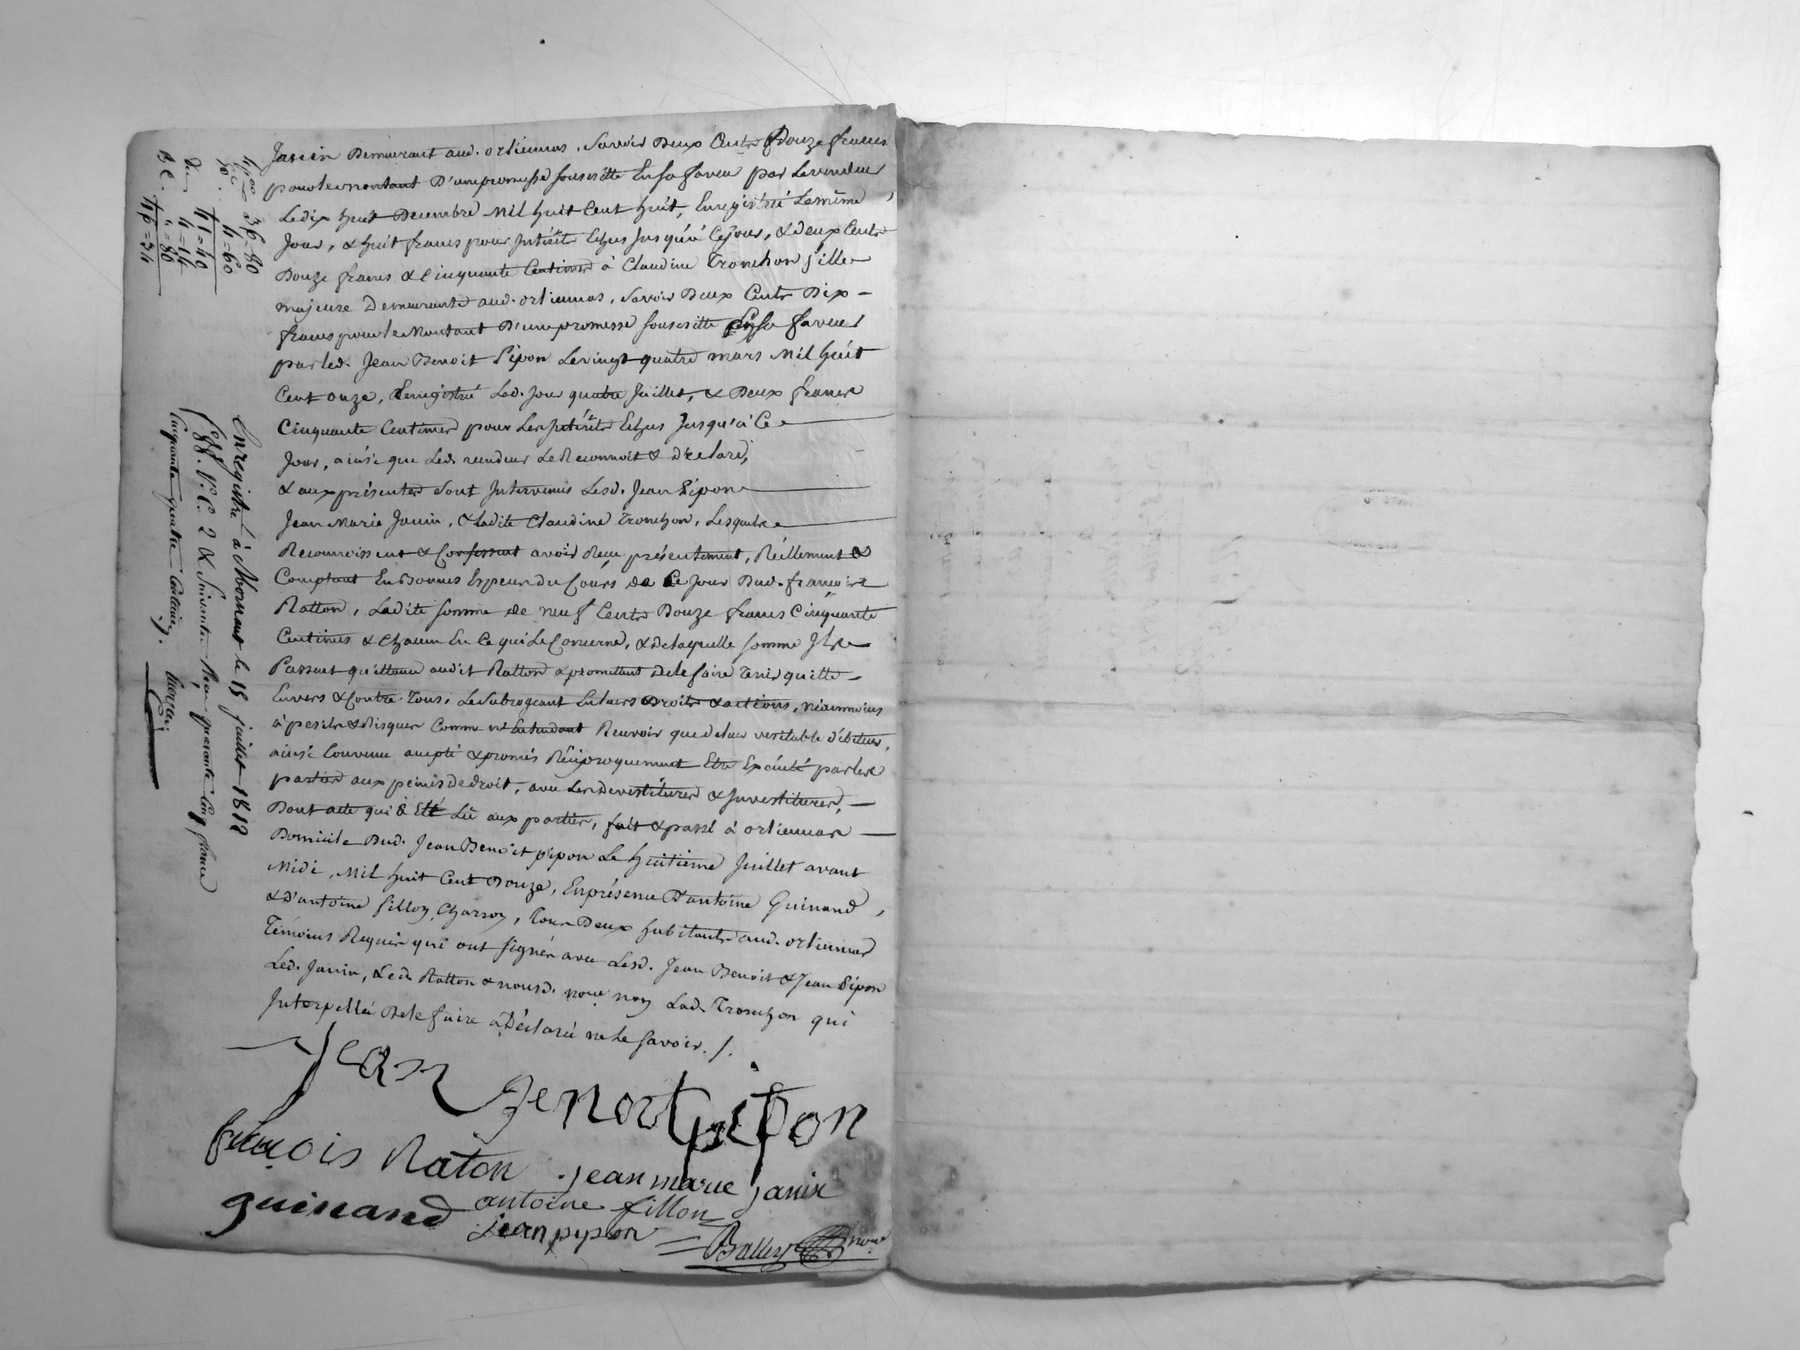 Janin Demeurant aud. ortiennas, Savoir Deux Cents Douze francs
pour le montant D'une promesse souscritte En sa faveur par Le vendeur
Le dix huit Decembre mil huit Cent huit, Enregistrée Le même
Jour, & huit francs pour Intérêts Echus Jusqu'à Ce Jour, & deux Cents
Douze francs & Cinquante Centimes à Claudine Tronchon fille
majeure Demeurante aud. ortiennas, Savoir Deux Cents Dix
francs pour le Montant D'une promesse souscritte En sa faveur
par led. Jean Benoit Pipon Le vingt quatre mars Mil huit
Cent onze, Enrégistré Led. Jour quatre Juillet, & Deux francs
Cinquante Centimes pour Les Intérêts Echus Jusqu'à Ce
Jour, ainsi que Led. vendeur Le Reconnoit & Déclare,
& aux présentes Sont Intervenus Lesd. Jean Pipon
Jean Marie Janin, & Ladite Claudine Tronchon, Lesquels
Reconnoissent & Confessent avoir Reçu présentement, Réellement &
Comptant En Bonnes Especes Du Cours de Ce Jour Dud. françois
Ratton, Ladite somme de neuf Cents Douze francs Cinquante
Centimes & Chacun En Ce qui Le Concerne, & de laquelle somme Ils
Passent quittance audit Ratton & promettent De le faire Tenir quitte
Envers & Contre Tous, Le Subrogeant En Leurs Droits & actions, néanmoins
à perils & Risques Comme n'Entendant Recevoir que de leur veritable débiteur,
ainsi Convenu accepté & promis Réciproquement Etre Exécuté par les
parties aux peines de droit, avec Les Devestitures & Investitures,
Dont acte qui à Eté Lû aux parties, fait & passé à ortiennas
Domicile Dud. Jean Benoit pipon Le huitieme Juillet avant
Midi, Mil huit Cent Douze, En présence D'antoine Guinand,
& D'antoine fillon, Charron, Tous Deux habitants aud. ortiennas
Témoins Requis qui ont signés avec Lesd. Jean Benoit & Jean Pipon
Led. Janin, Led. Ratton & nousd. nore non Lad. Tronchon qui
Interpellée De le faire a Déclaré ne Le savoir. /.
Jean Benoit pipon
françois Raton
jean marie Janin
guinand
antoine fillon
jean pipon
Balley nore
Enregistré à Mornant le 15 juillet 1812
Vo. C. 2 & Suivantes Reçu quarante Cinq francs
Cinquante quatre Centimes.
36=80
4=60
41=40
4=14
46=34